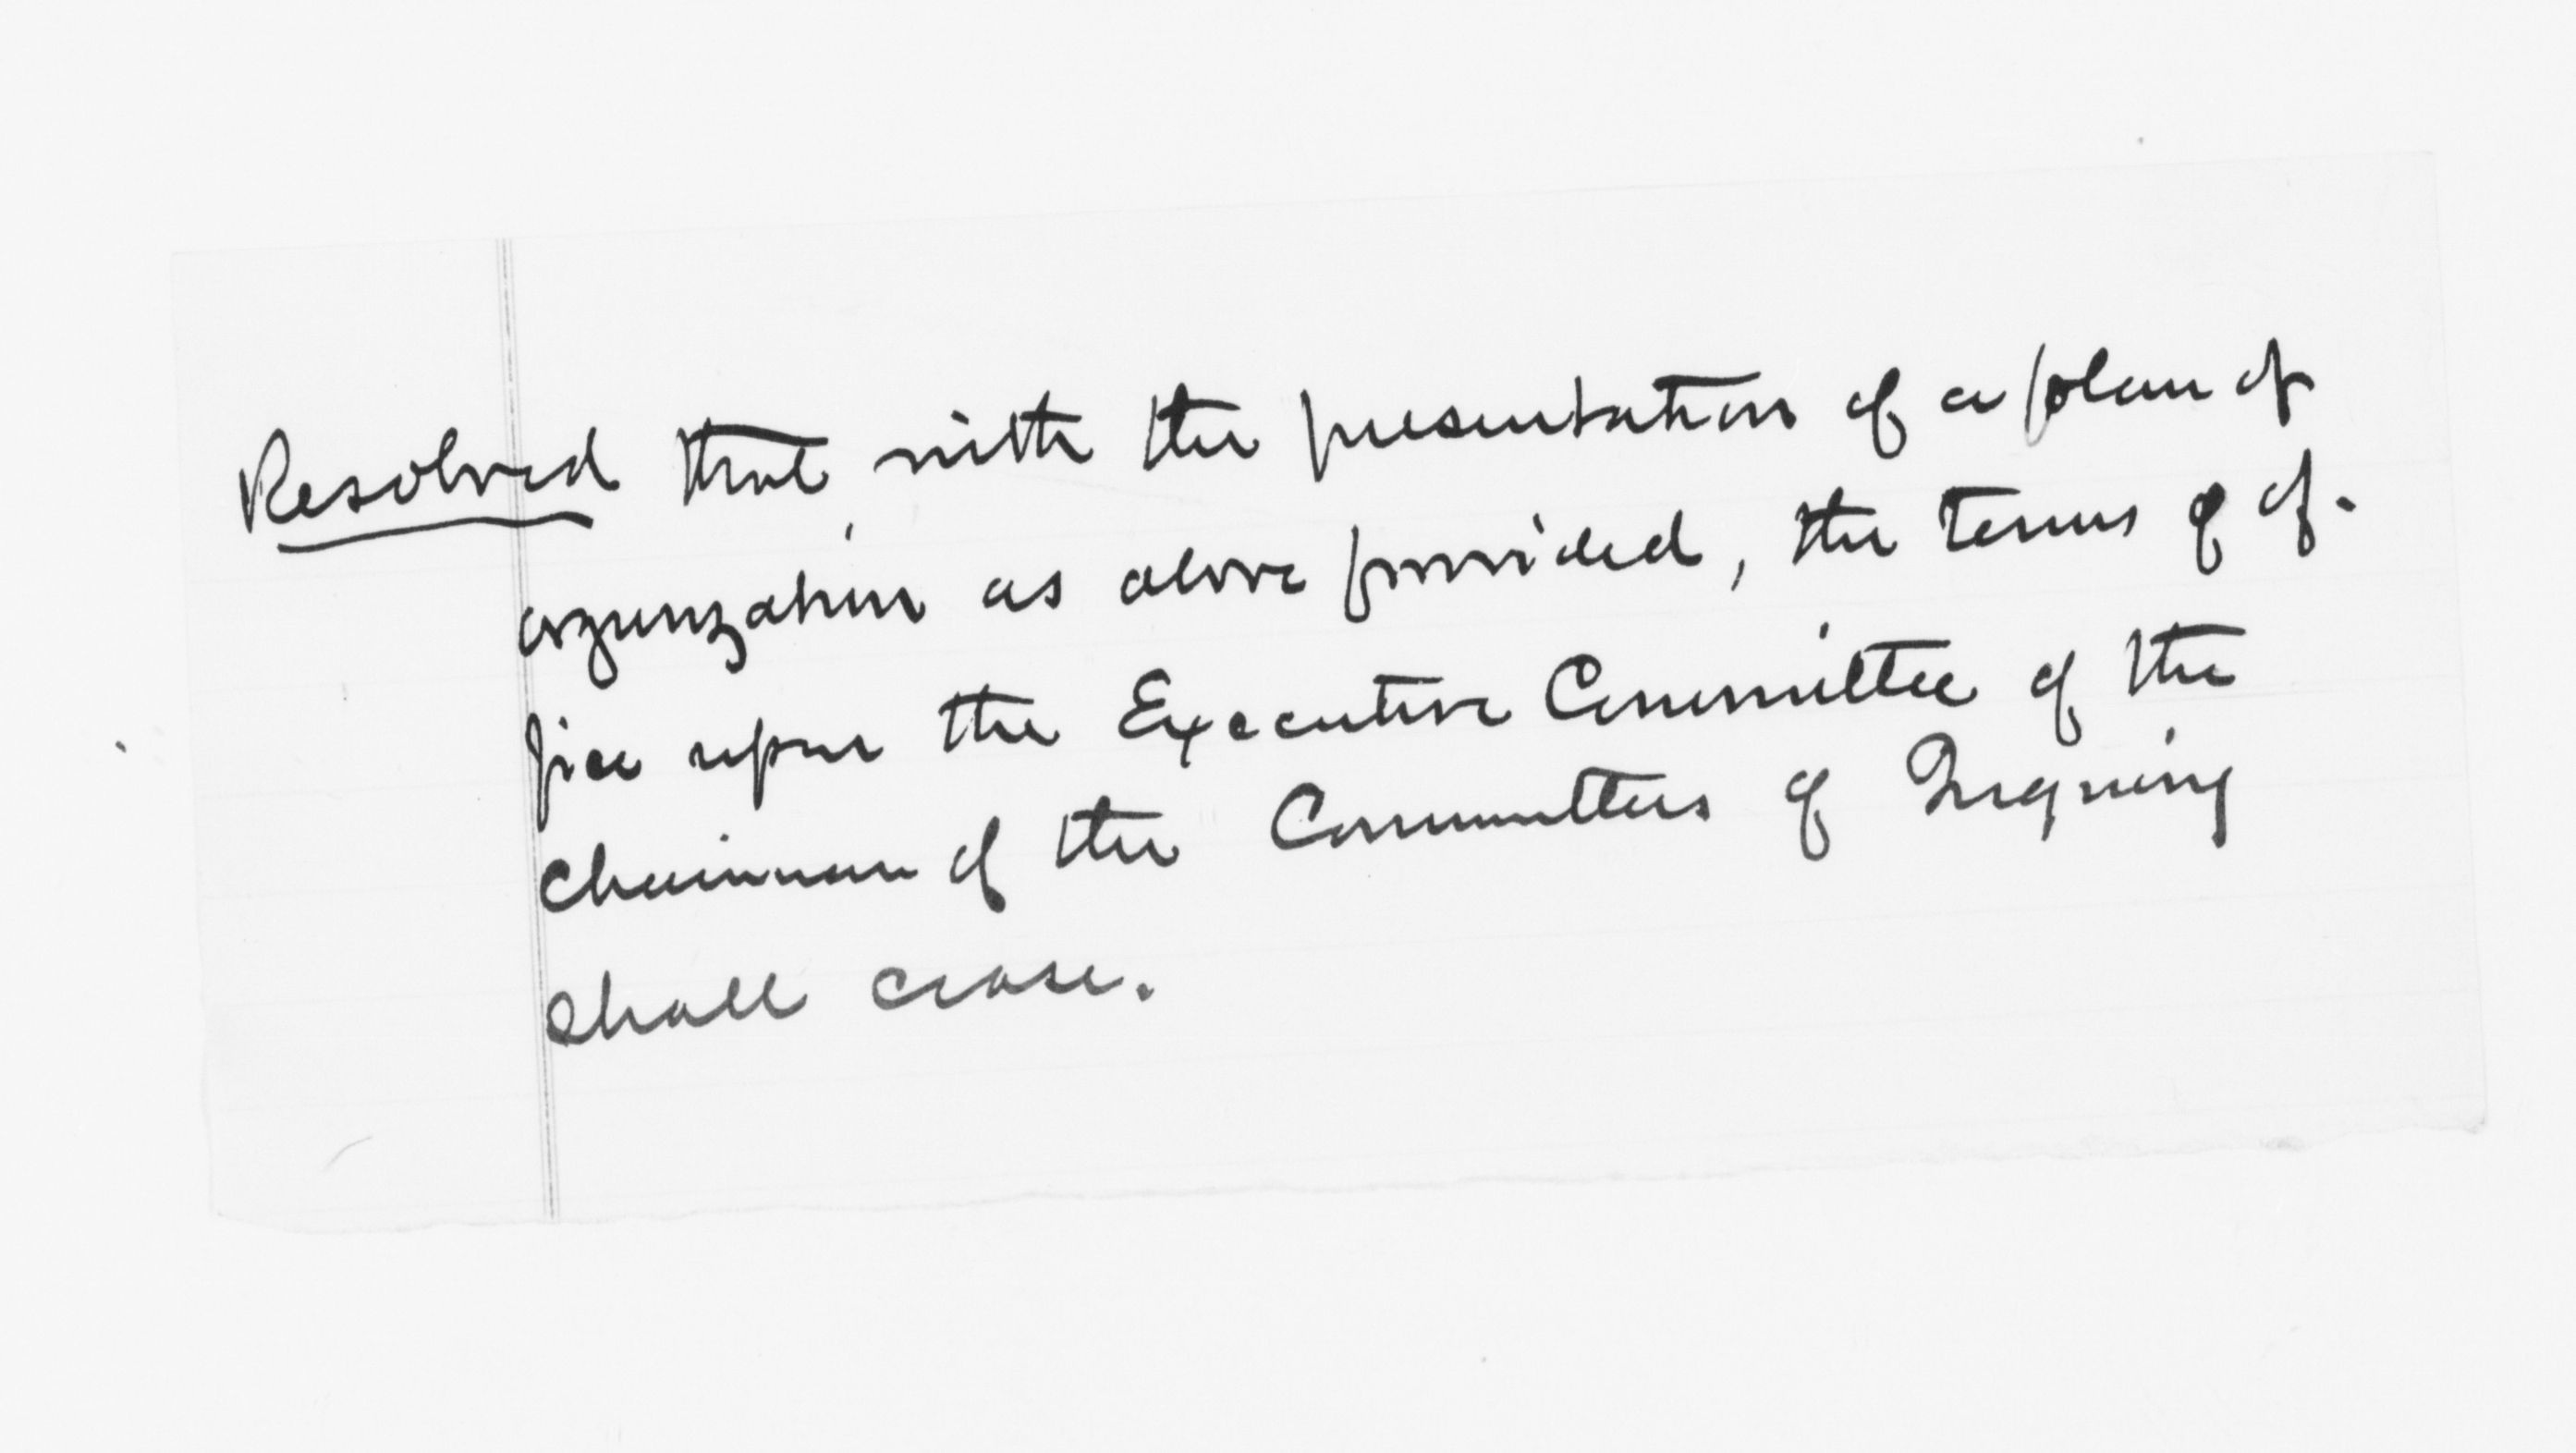 Resolved that with the presentation of a plan of
organization as above provided, the terms of of-
fice upon the Executive Committee of the
Chairman of the Committees of Inquiry
shall cease.